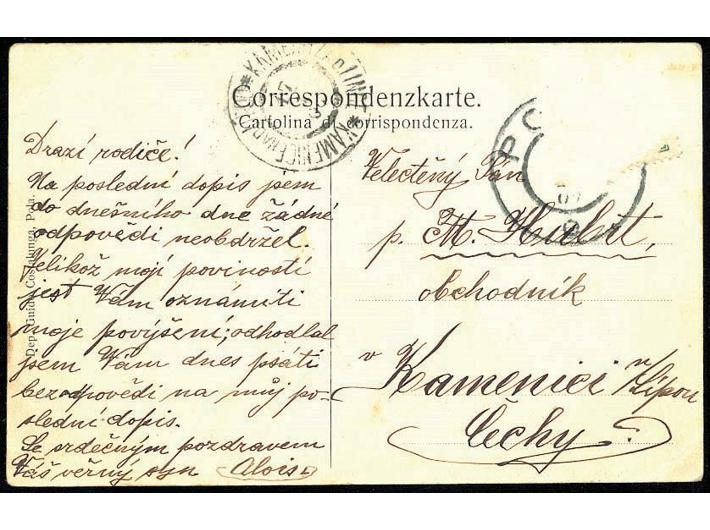 Correspondenzkarte.
Cartolina di corrispondenza.
Drazí rodiče!
Na poslední dopis jsem
do dnešního dne žádné
odpovědi neobdržel.
Jelikož mojí poviností
jest Vám oznámiti
moje povýšení; odhodlal
jsem Vám dnes psáti
bezodpovědi na můj po-
slední dopis.
Se srdečným pozdravem
Váš věrný syn Alois.
Velectěný Pán
p. M.
obchodník
v Kamenici n/Lipou
Čechy.
Dep. Guido Costalunga, Pola.
KAMENICE
PO